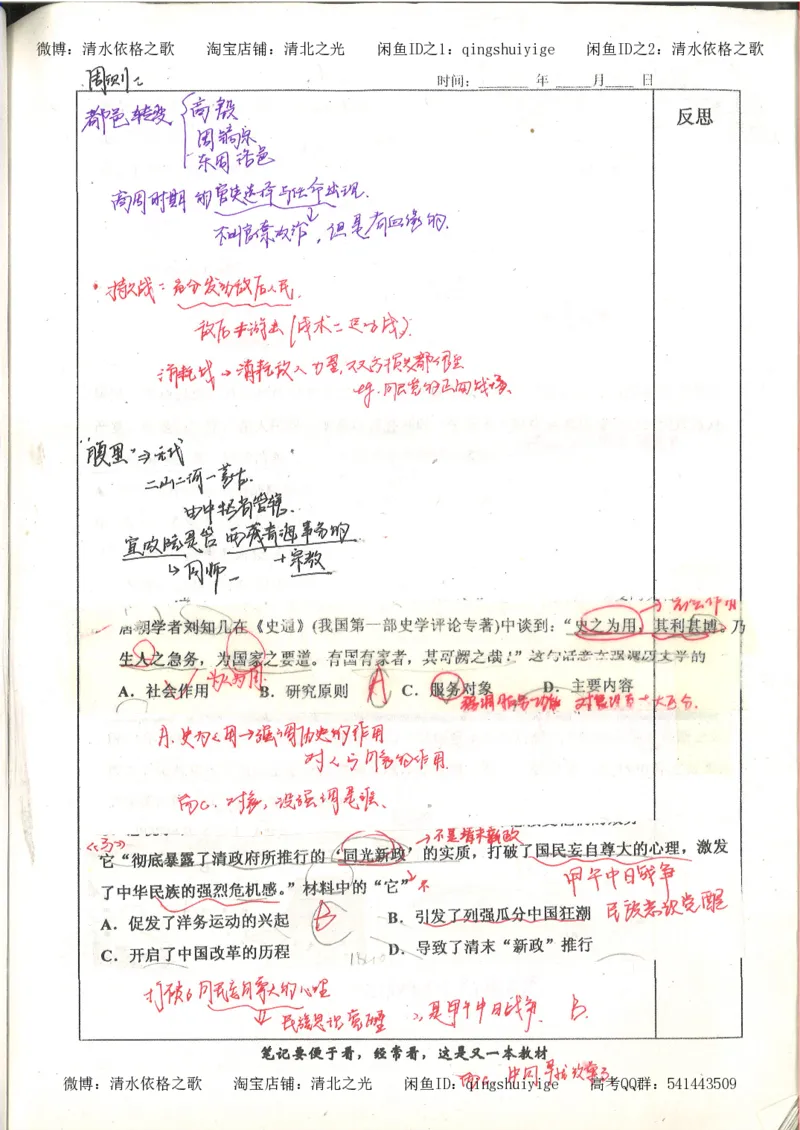 微博：清水依格之歌 淘宝店铺：清北之光 闲鱼ID之1：qingshuiyige 闲鱼ID之2：清水依格之歌
周测2
时间： 年 月 日
反思
都邑转变
商殷
周镐京
东周洛邑
商周时期的官吏选择与任命出现.
不叫官僚政治，但是有血缘的.
持久战：充分发动敌后人民.
敌后游击(战术：运动战).
消耗战→消耗敌人力量，双方损失都很
eg.国民党的正面战场
“腹里”→元代
二山二河一蒙古.
由中书省管辖.
宣政院是管西藏青海事务的
↳国师 +宗教
唐朝学者刘知几在《史通》(我国第一部史学评论专著)中谈到：“史之为用，其利甚博。乃
生人之急务，为国家之要道。有国有家者，其可阙之哉！”这句话意在强调历史学的
A．社会作用 B．研究原则 C．服务对象 D．主要内容
A
A.史为人用→强调历史的作用
对人与国家的作用
而C.对象，没强调
→不是清末新政
它“彻底暴露了清政府所推行的‘同光新政’的实质，打破了国民妄自尊大的心理，激发
了中华民族的强烈危机感。”材料中的“它”
甲午中日战争
民族意识觉醒
A．促发了洋务运动的兴起 B．引发了列强瓜分中国狂潮
B
C．开启了中国改革的历程 D．导致了清末“新政”推行
打破了国民妄自尊大的心理
民族意识觉醒 ∴是甲午中日战争. B.
笔记要便于看，经常看，这是又一本教材
而C 中国早就改革了
微博：清水依格之歌 淘宝店铺：清北之光 闲鱼ID：qingshuiyige 高考QQ群：541443509